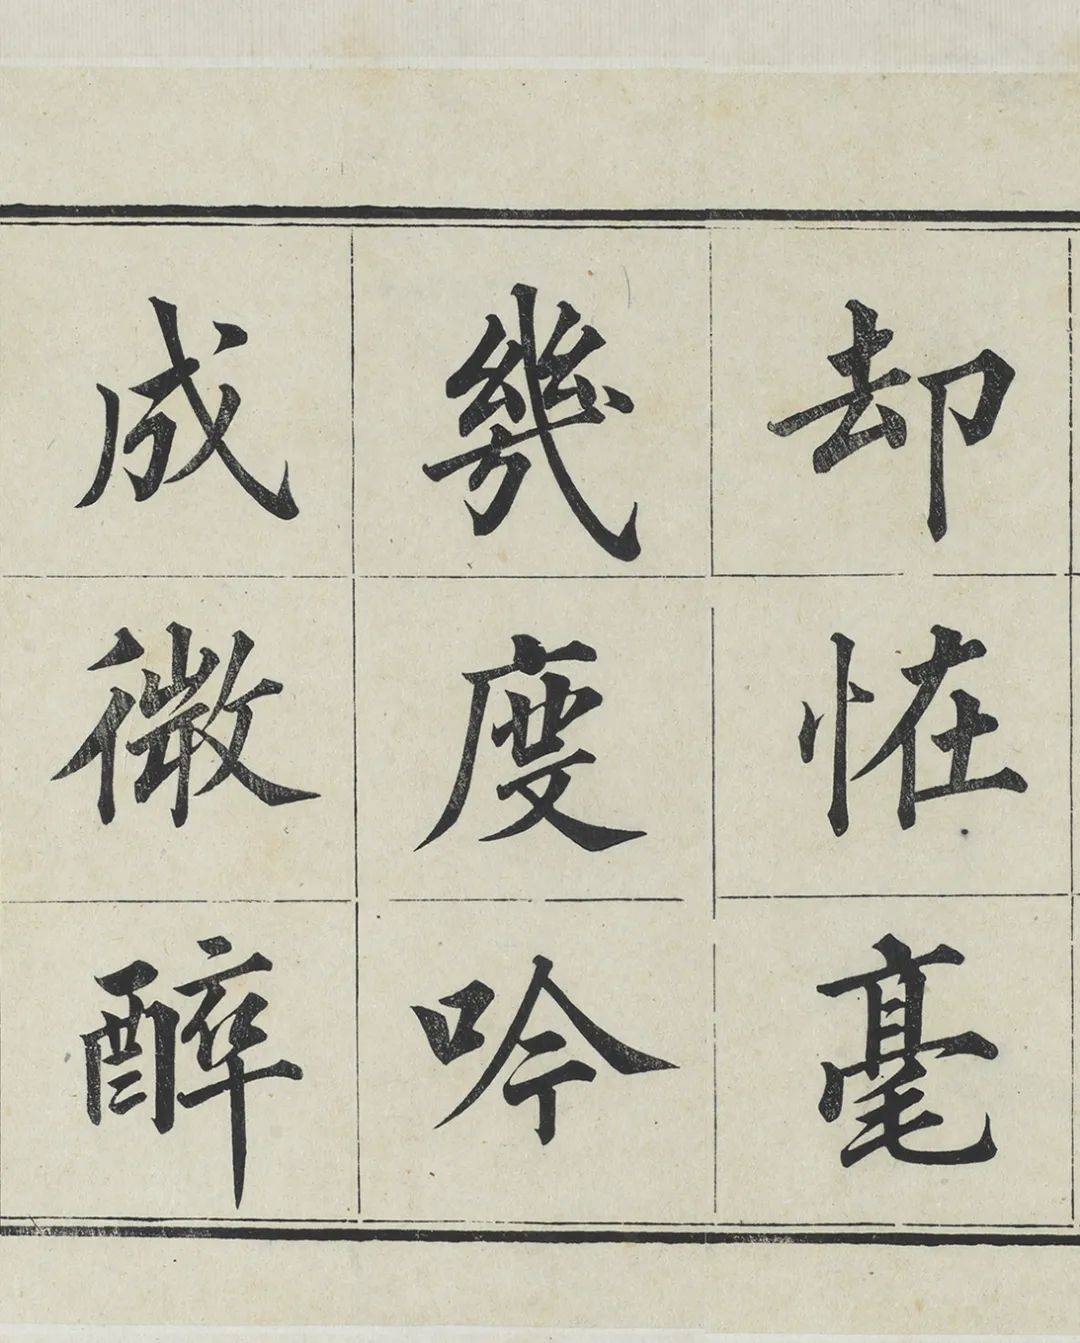 却恠毫
幾度吟
成微醉